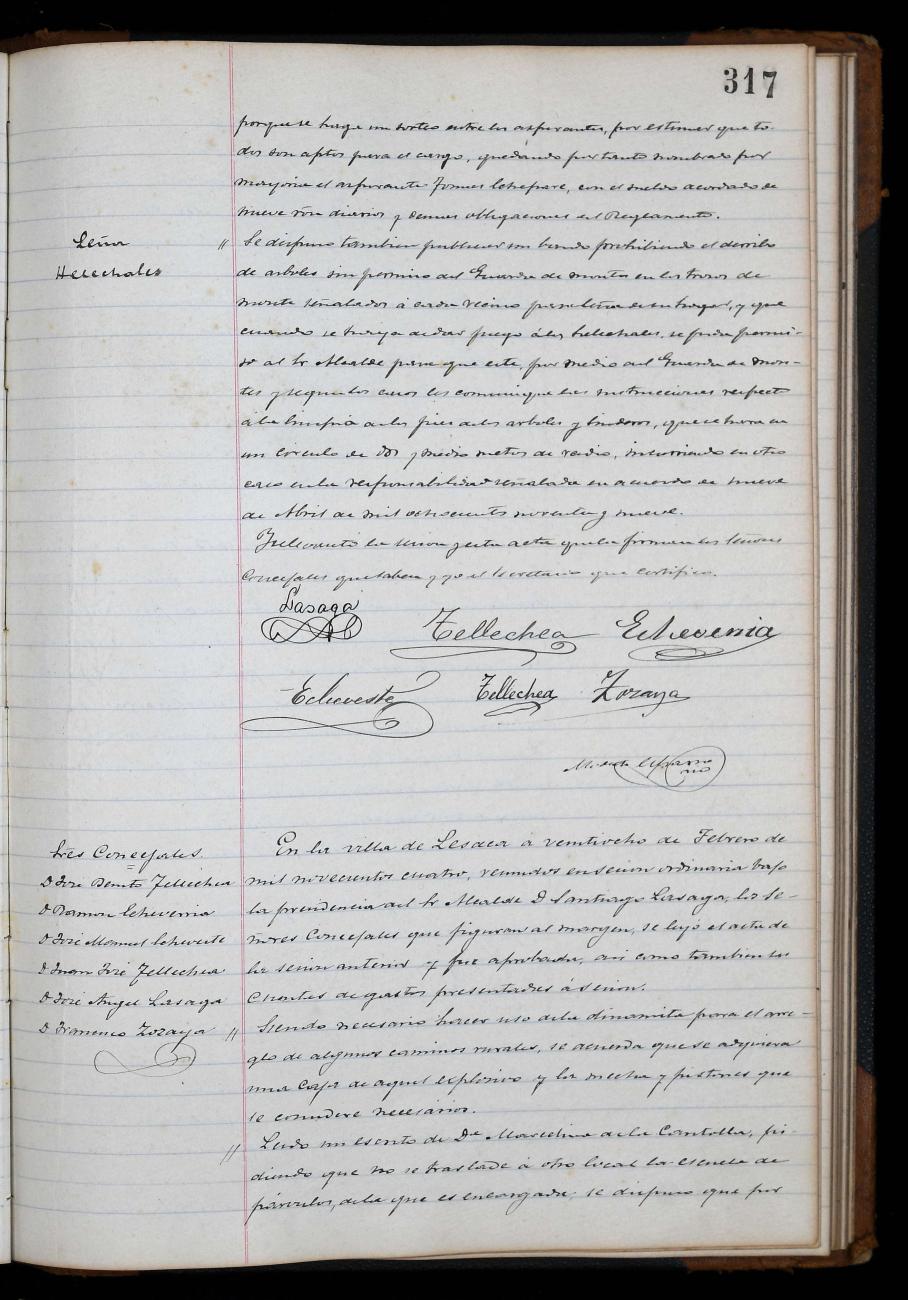 317
porque se haga un sorteo entre los aspirantes, por estimar que to-
dos son aptos para el cargo, quedando por tanto nombrado por
mayoria el aspirante Tomas Echepare, con el sueldo acordado de
nueve rôn diarios y demas obligaciones del Reglamento.
Leña
Helechales
" Se dispuso tambien publicar un bando prohibiendo el derribo
de arboles sin permiso del Guarda de montes en los trozos de
monte señalados á cada vecino para leña de su hogar, y que
cuando se trate de dar fuego á los helechales, se pida permi-
so al Sr Alcalde para que este, por medio del Guarda de mon-
tes y segun los casos les comunique las instrucciones respecto
á la limpia de los pies de los arboles y linderos, que se hara en
un circulo de dos y medio metros de radio, incurriendo en otro
caso en la responsabilidad señalada en acuerdo de nueve
de Abril de mil ochocientos noventa y nueve.
Y se levantó la sesion y esta acta que la firman los Señores
Concejales que saben y yo el Secretario que certifico.
Lasaga
Tellechea Echeverria
Echeveste Tellechea Zozaya
Sres Concejales.
D José Benito Tellechea
D Ramon Echeverria
D José Manuel Echeveste
D Juan José Tellechea
D José Angel Lasaga
D Francisco Zozaya
En la villa de Lesaca á veintiocho de Febrero de
mil novecientos cuatro, reunidos en sesion ordinaria bajo
la presidencia del Sr Alcalde D Santiago Lasaga, los Se-
ñores Concejales que figuran al margen, se leyó el acta de
la sesion anterior y fue aprobada, asi como tambien las
cuentas de gastos presentadas á sesion.
" Siendo necesario hacer uso de la dinamita para el arre-
glo de algunos caminos rurales, se acuerda que se adquiera
una caja de aquel explosivo y la mecha y pistones que
se considere necesarios.
" Leido un escrito de Dª Marcelina de la Cantolla, pi-
diendo que no se traslade á otro local la escuela de
párvulos, de la que es encargada; se dispuso que por